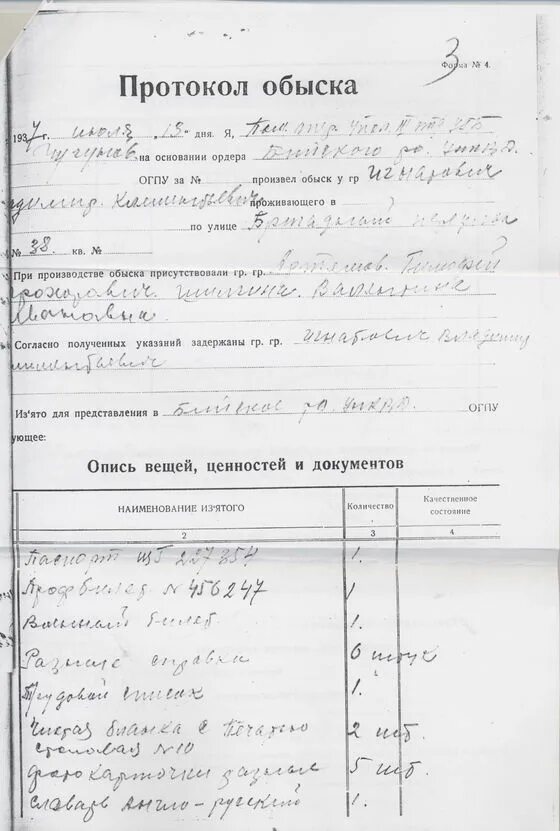 3
Форма № 4.
Протокол обыска
1937 г. июля 13 дня. Я, Пом. опер. Упол. III отд. УГБ
на основании ордера Бийского ро. УНКВД.
ОГПУ за № произвел обыск у гр Игнатович
Владимир проживающего в
по улице Бригадный переулок
№ 38. кв. №
При производстве обыска присутствовали гр. гр. Артемов. Тимофей
Прохорович. Шилкина. Валентина
Ивановна.
Согласно полученных указаний задержаны гр. гр. Игнатович Владимир
Из'ято для представления в Бийское ро. УНКВД. ОГПУ
ующее:
Опись вещей, ценностей и документов
НАИМЕНОВАНИЕ ИЗ'ЯТОГО Количество Качественное состояние
2 3 4
Паспорт 227354 1.
Профбилет №456247 1
Военный билет 1.
Разные справки 6 штук
Трудовой список 1.
Чистая бланка с Печатью 2 шт.
столовая №10
фото карточки разные 5 шт.
Словарь Англо-русский 1.